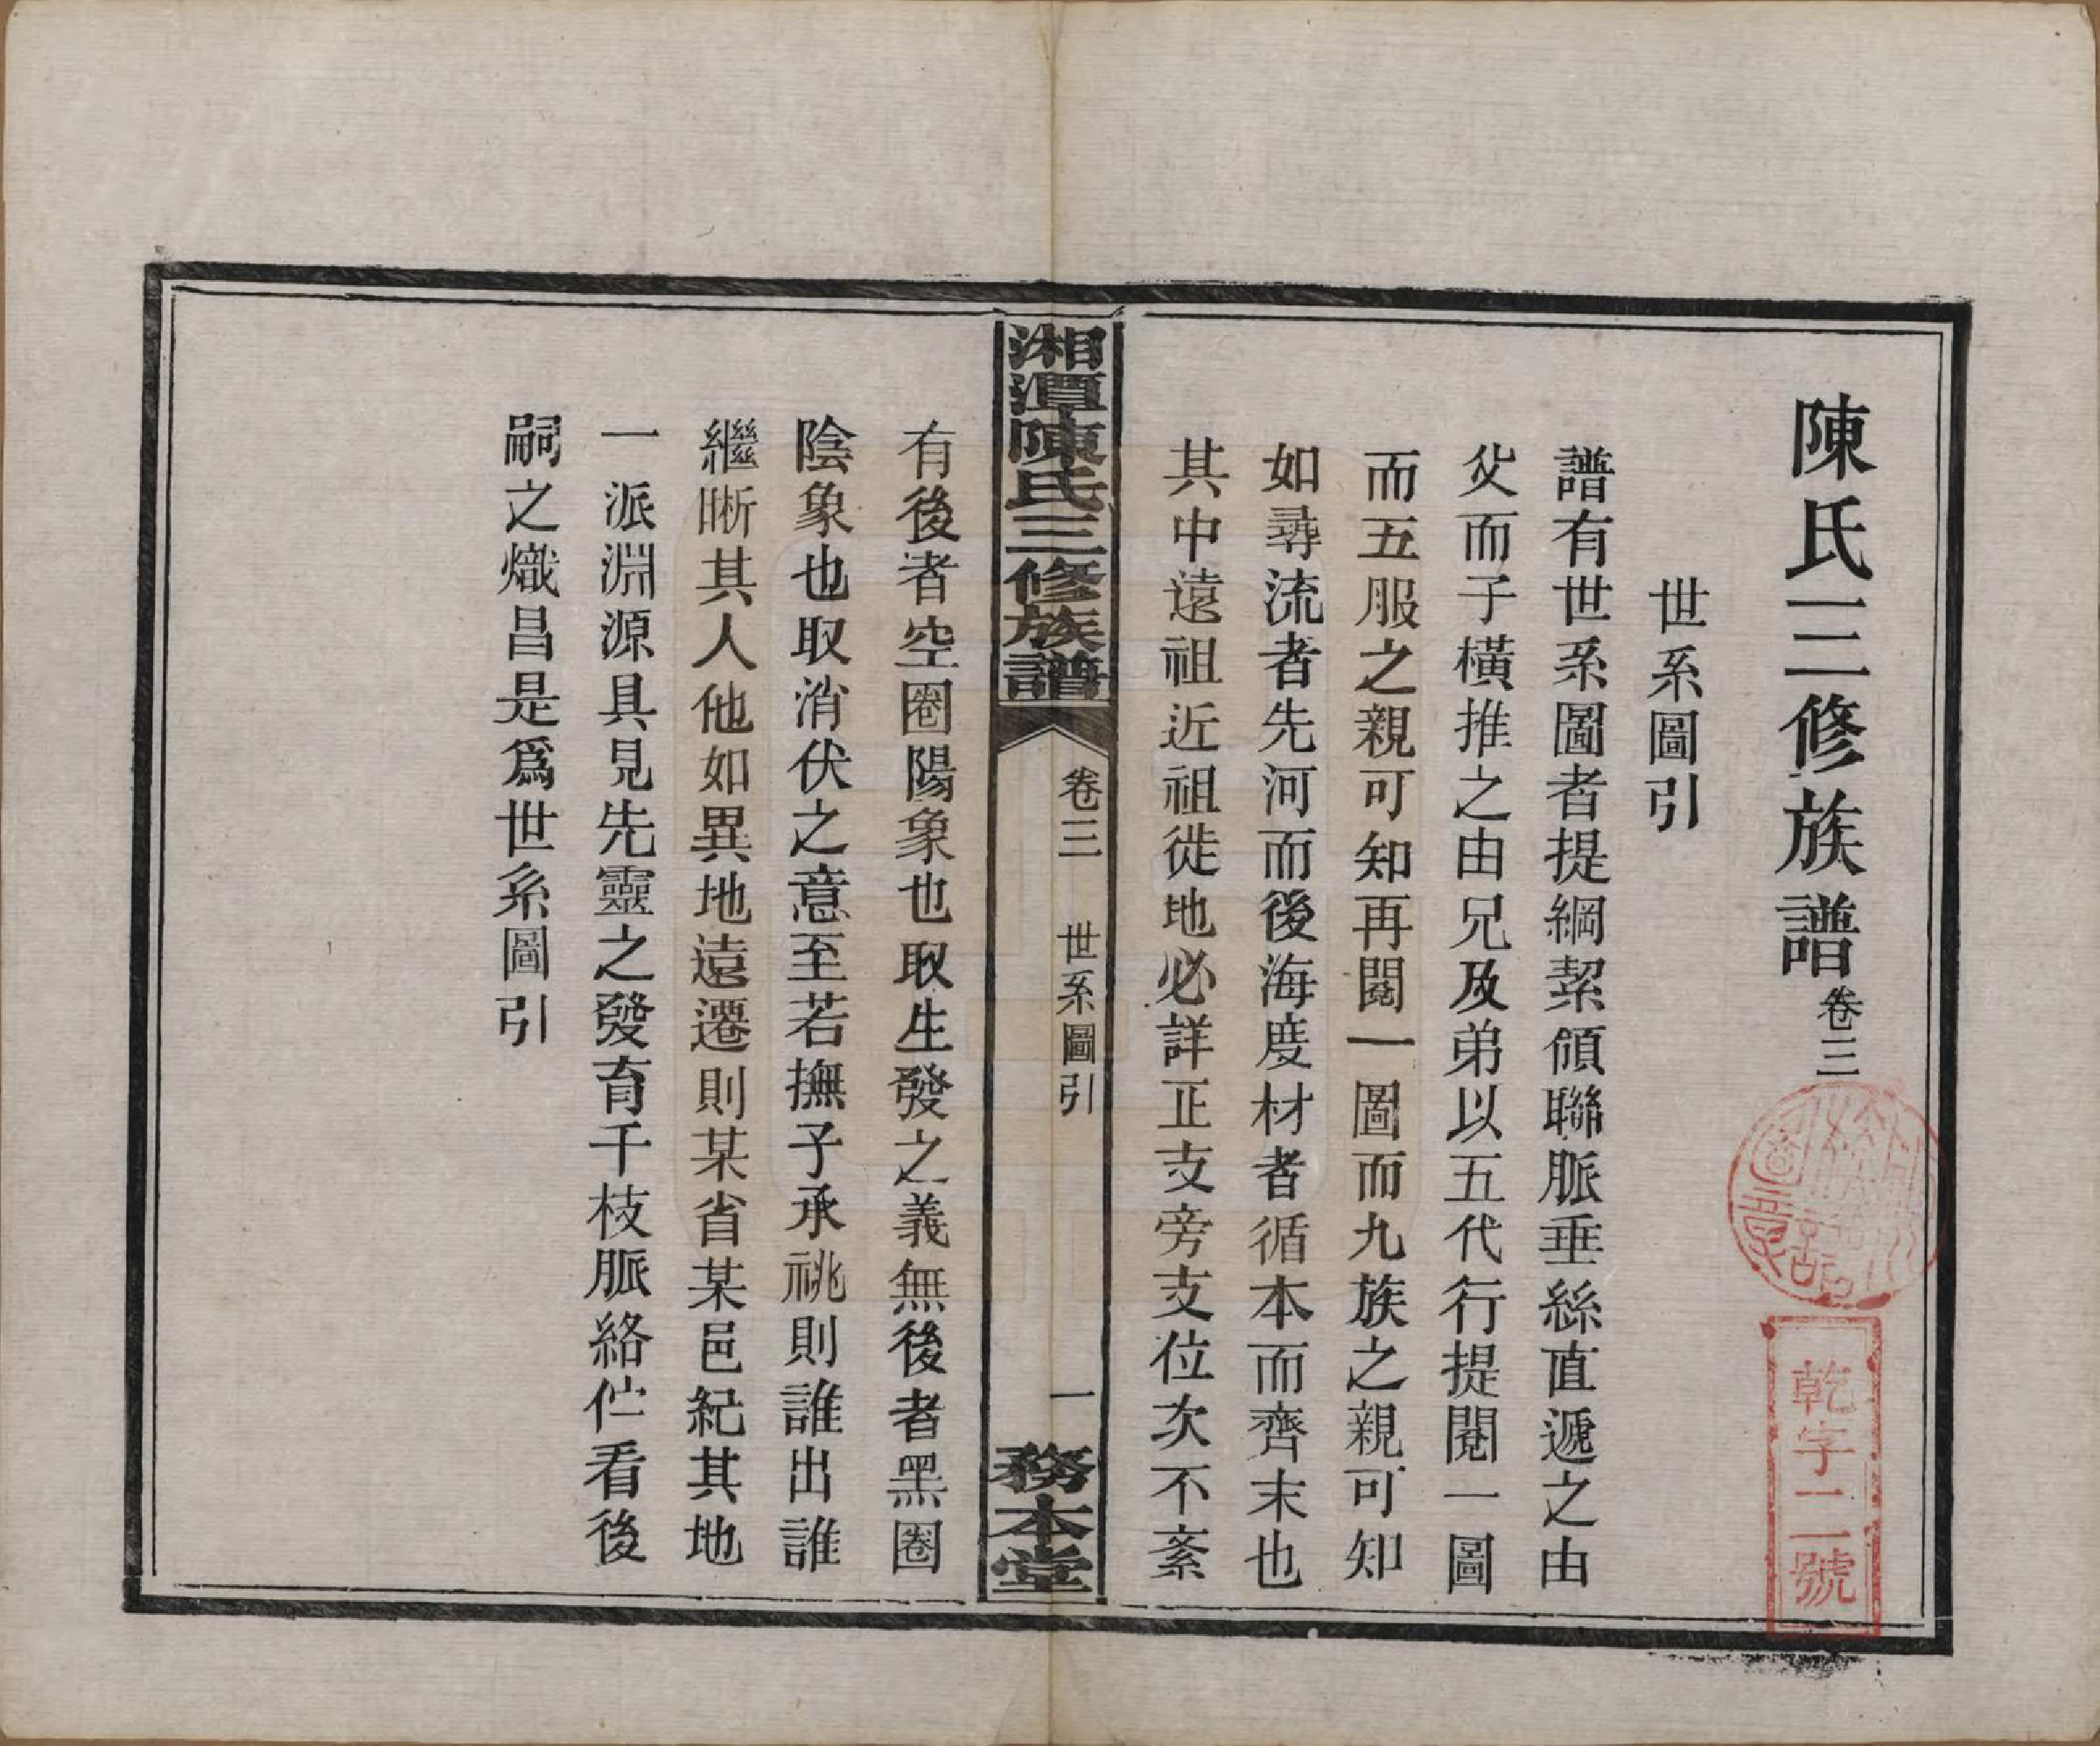 陳氏三修族譜卷三
世系圖引
譜有世系圖者提綱絜領聯脈垂絲直遞之由
父而子橫推之由兄及弟以五代行提閱一圖
而五服之親可知再閱一圖而九族之親可知
如尋流者先河而後海度材者循本而齊末也
其中遠祖近祖徙地必詳正支旁支位次不紊
湘潭陳氏三修族譜
卷三
世系圖引
一
務本堂
有後者空圈陽象也取生發之義無後者黑圈
陰象也取消伏之意至若撫子承祧則誰出誰
繼晰其人他如異地遠遷則某省某邑紀其地
一派淵源具見先靈之發育千枝脈絡伫看後
嗣之熾昌是爲世系圖引
乾字二號